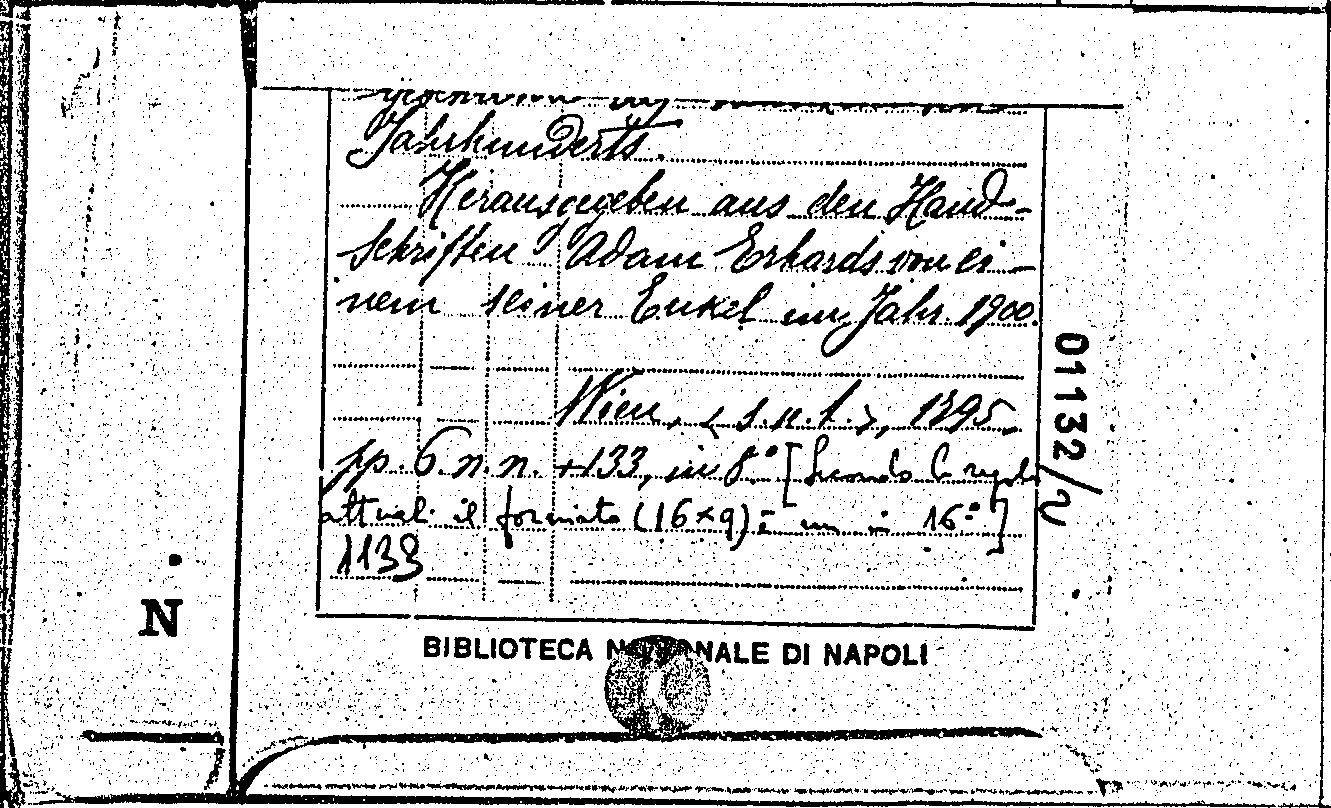 Jahrhunderts.
Herausgegeben aus den Hand-
schriften Adam Erhards von ei-
nem seiner Enkel im Jahr 1900.
Wien, < s.n.t. >, 1795.
pp. 6 n.n. +133, in 8.° [Secondo le regole
attuali il formato (16×9) è un in 16.°]
1138
01132/2
N
BIBLIOTECA NAZIONALE DI NAPOLI